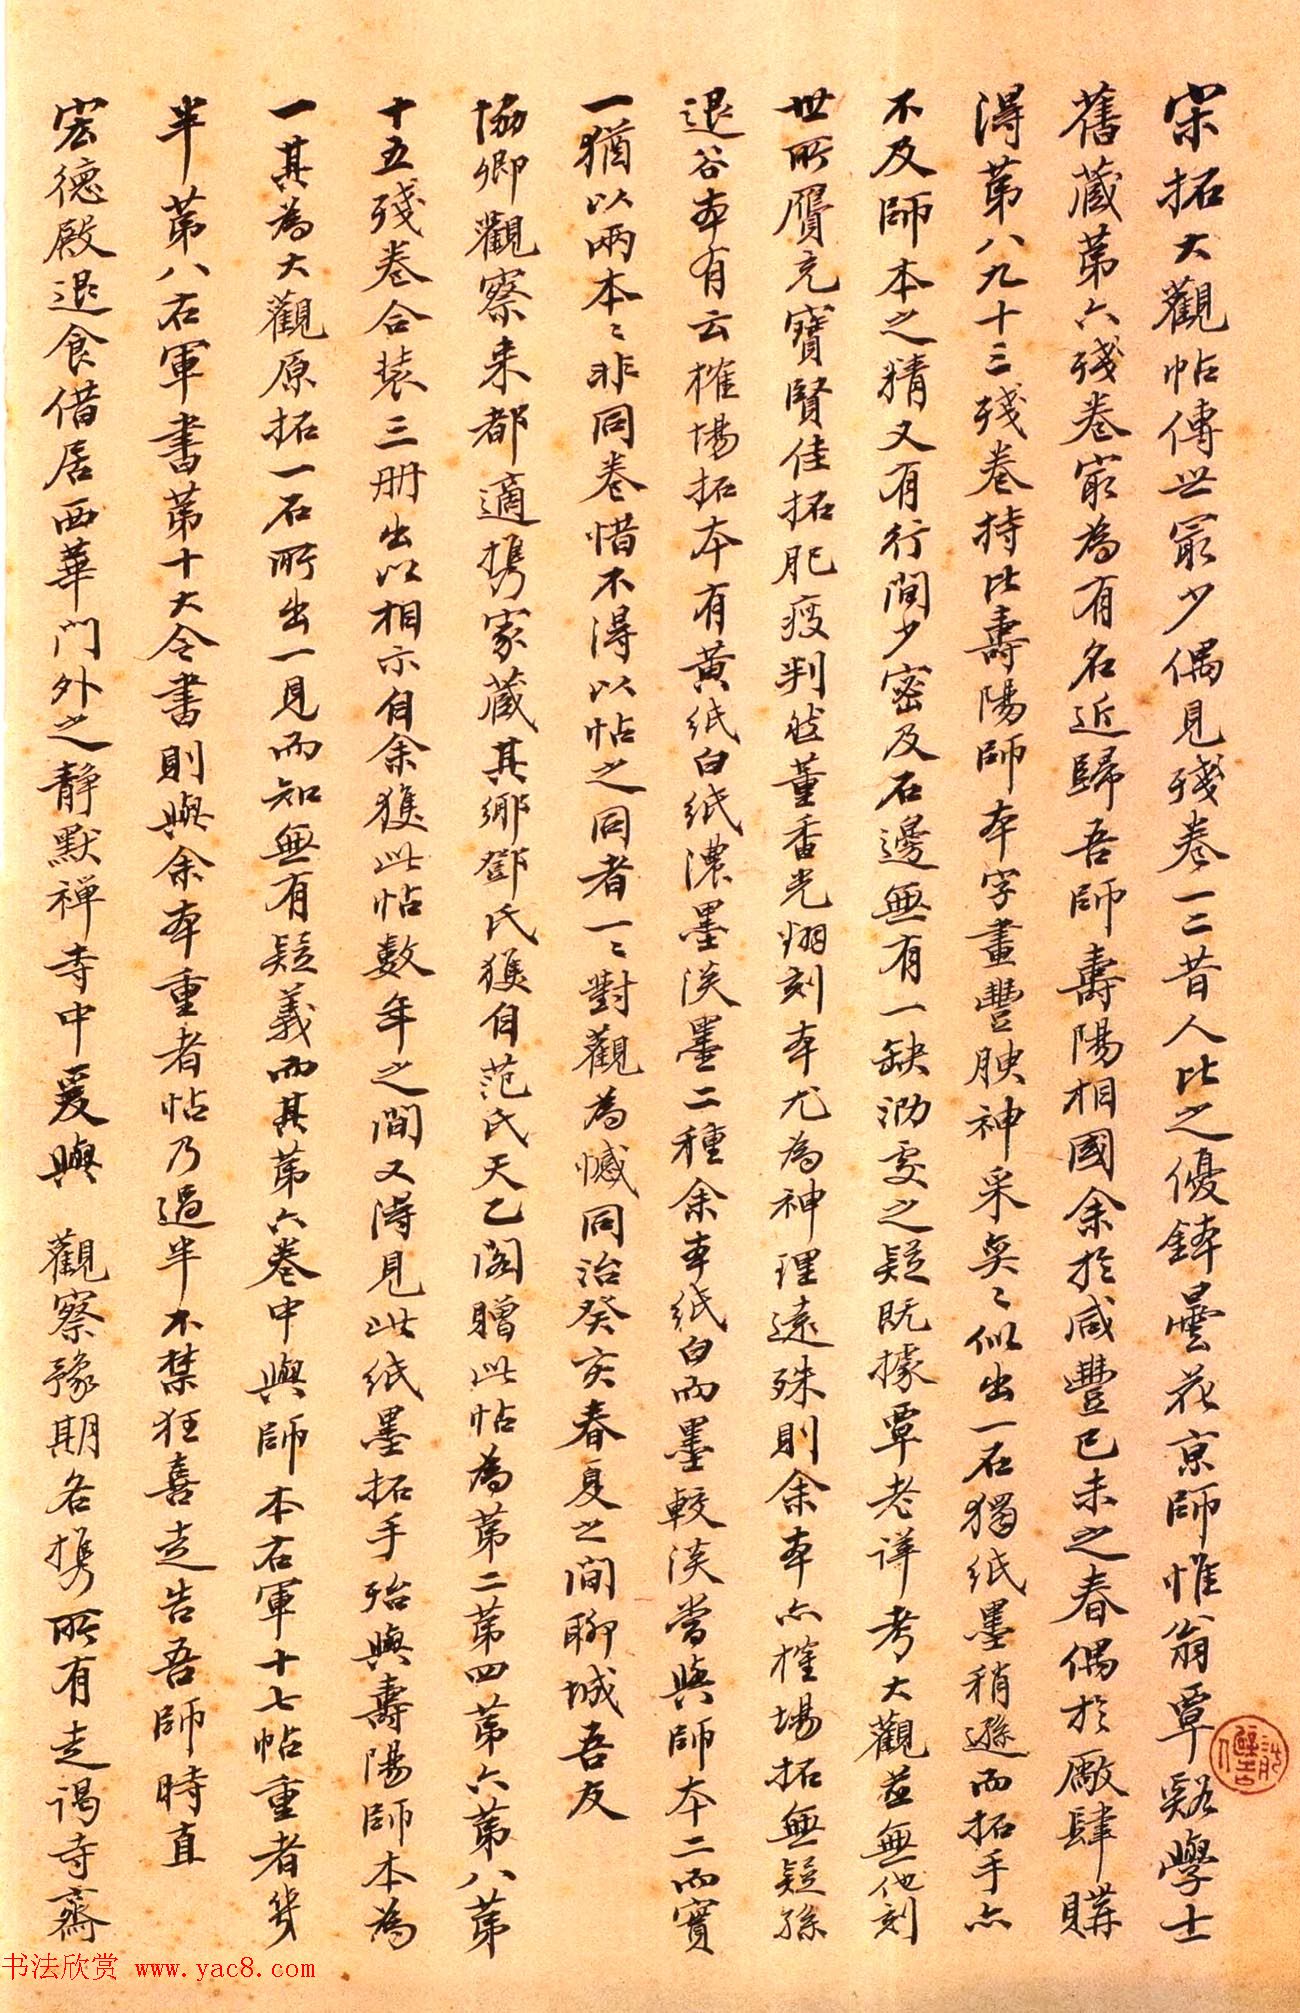 宋拓大觀帖傳世最少偶見殘卷一二昔人比之優鉢曇花京師惟翁覃谿學士
舊藏第六殘卷最為有名近歸吾師壽陽相國余於咸豐己未之春偶於廠肆購
得第八九十三殘卷持比壽陽師本字畫豐腴神采奕〻似出一石獨紙墨稍遜而拓手亦
不及師本之精又有行間少密及石邊無有一缺泐處之疑既據覃老詳考大觀並無他刻
世所贋充寶賢佳拓肥瘦判然董香光翻刻本尤為神理遠殊則余本亦榷場拓無疑孫
退谷本有云榷場拓本有黃紙白紙濃墨淡墨二種余本紙白而墨較淡當與師本二而實
一猶以兩本〻非同卷惜不得以帖之同者一〻對觀為憾同治癸亥春夏之間聊城吾友
協卿觀察來都適攜家藏其鄉鄧氏獲自范氏天乙閣贈此帖為第二第四第六第八第
十五殘卷合裝三册出以相示自余獲此帖數年之間又得見此紙墨拓手殆與壽陽師本為
一其為大觀原拓一石所出一見而知無有疑義而其第六卷中與師本右軍十七帖重者幾
半第八右軍書第十大令書則與余本重者帖乃過半不禁狂喜走告吾師時直
宏德殿退食借居西華門外之靜默禪寺中爰與 觀察豫期各攜所有走謁寺齋
书法欣赏 www.yac8.com